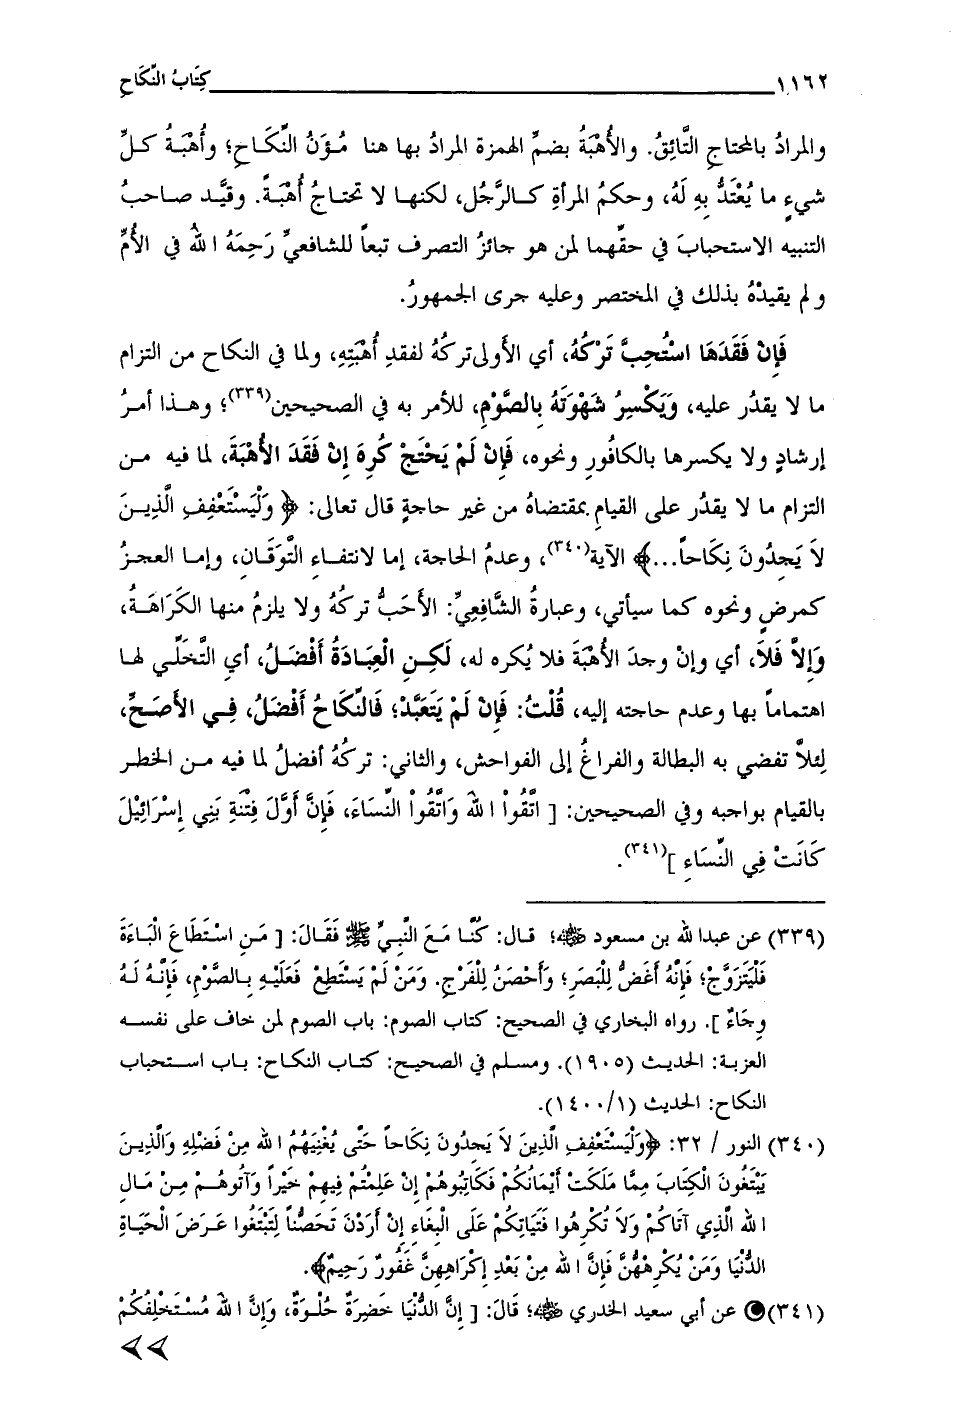 ١١٦٢ كِتَابُ النِّكَاحِ
والمرادُ بالمحتاجِ التَّائِقُ. والأُهْبَةُ بضمِّ الهمزة المرادُ بها هنا مُؤَنُ النِّكَاحِ؛ وأُهْبَةُ كلِّ
شيءٍ ما يُعْتَدُّ بِهِ لَهُ، وحكمُ المرأةِ كالرَّجُل، لكنها لا تحتاجُ أُهْبَةً. وقيَّد صاحبُ
التنبيه الاستحبابَ في حقِّهما لمن هو جائزُ التصرف تبعاً للشافعيِّ رَحِمَهُ اللهُ في الأُمِّ
ولم يقيدْهُ بذلك في المختصر وعليه جرى الجمهورُ.
فَإِنْ فَقَدَهَا اسْتُحِبَّ تَرْكُهُ، أي الأَولى تركُهُ لفقدِ أُهْبَتِهِ، ولما في النكاح من التزام
ما لا يقدُر عليه، وَيَكْسِرُ شَهْوَتَهُ بِالصَّوْمِ، للأمر به في الصحيحين(٣٣٩)؛ وهذا أمرُ
إرشادٍ ولا يكسرها بالكافُورِ ونحوه، فَإِنْ لَمْ يَحْتَجْ كُرِهَ إِنْ فَقَدَ الأُهْبَةَ، لما فيه من
التزام ما لا يقدُر على القيامِ بمقتضاهُ من غير حاجةٍ قال تعالى: ﴿ وَلْيَسْتَعْفِفِ الَّذِينَ
لاَ يَجِدُونَ نِكَاحاً...﴾ الآية(٣٤٠)، وعدمُ الحاجة، إما لانتفاءِ التَّوَقَانِ، وإما العجزُ
كمرضٍ ونحوه كما سيأتي، وعبارةُ الشَّافِعِيِّ: الأَحَبُّ تركُهُ ولا يلزمُ منها الكَرَاهَةُ،
وَإِلاَّ فَلاَ، أي وإنْ وجدَ الأُهْبَةَ فلا يُكره له، لَكِنِ الْعِبَادَةُ أَفْضَلُ، أي التَّخَلِّي لها
اهتماماً بها وعدم حاجته إليه، قُلْتُ: فَإِنْ لَمْ يَتَعَبَّدْ؛ فَالنِّكَاحُ أَفْضَلُ، فِي الأَصَحِّ،
لِئَلاَّ تفضي به البطالة والفراغُ إلى الفواحش، والثاني: تركُهُ أفضلُ لما فيه من الخطر
بالقيام بواجبه وفي الصحيحين: [ اتَّقُواْ اللهَ وَاتَّقُواْ النِّسَاءَ، فَإِنَّ أَوَّلَ فِتْنَةِ بَنِي إِسْرَائِيْلَ
كَانَتْ فِي النِّسَاءِ ](٣٤١).
(٣٣٩) عن عبدا لله بن مسعود ﷺ؛ قال: كُنَّا مَعَ النَّبِيِّ ﷺ فَقَالَ: [ مَنِ اسْتَطَاعَ الْبَاءَةَ
فَلْيَتَزَوَّجْ؛ فَإِنَّهُ أَغَضُّ لِلْبَصَرِ؛ وَأَحْصَنُ لِلْفَرْجِ. وَمَنْ لَمْ يَسْتَطِعْ فَعَلَيْهِ بِالصَّوْمِ، فَإِنَّهُ لَهُ
وِجَاءٌ ]. رواه البخاري في الصحيح: كتاب الصوم: باب الصوم لمن خاف على نفسه
العزبة: الحديث (١٩٠٥). ومسلم في الصحيح: كتاب النكاح: باب استحباب
النكاح: الحديث (١٤٠٠/١).
(٣٤٠) النور / ٣٢: ﴿وَلْيَسْتَعْفِفِ الَّذِينَ لاَ يَجِدُونَ نِكَاحاً حَتَّى يُغْنِيَهُمُ اللهُ مِنْ فَضْلِهِ وَالَّذِينَ
يَبْتَغُونَ الْكِتَابَ مِمَّا مَلَكَتْ أَيْمَانُكُمْ فَكَاتِبُوهُمْ إِنْ عَلِمْتُمْ فِيهِمْ خَيْراً وَآتُوهُمْ مِنْ مَالِ
اللهِ الَّذِي آتَاكُمْ وَلاَ تُكْرِهُوا فَتَيَاتِكُمْ عَلَى الْبِغَاءِ إِنْ أَرَدْنَ تَحَصُّناً لِتَبْتَغُوا عَرَضَ الْحَيَاةِ
الدُّنْيَا وَمَنْ يُكْرِهْهُنَّ فَإِنَّ اللهَ مِنْ بَعْدِ إِكْرَاهِهِنَّ غَفُورٌ رَحِيمٌ﴾.
(٣٤١) عن أبي سعيد الخدري؛ قَالَ: [ إِنَّ الدُّنْيَا خَضِرَةٌ حُلْوَةٌ، وَإِنَّ اللهَ مُسْتَخْلِفُكُمْ